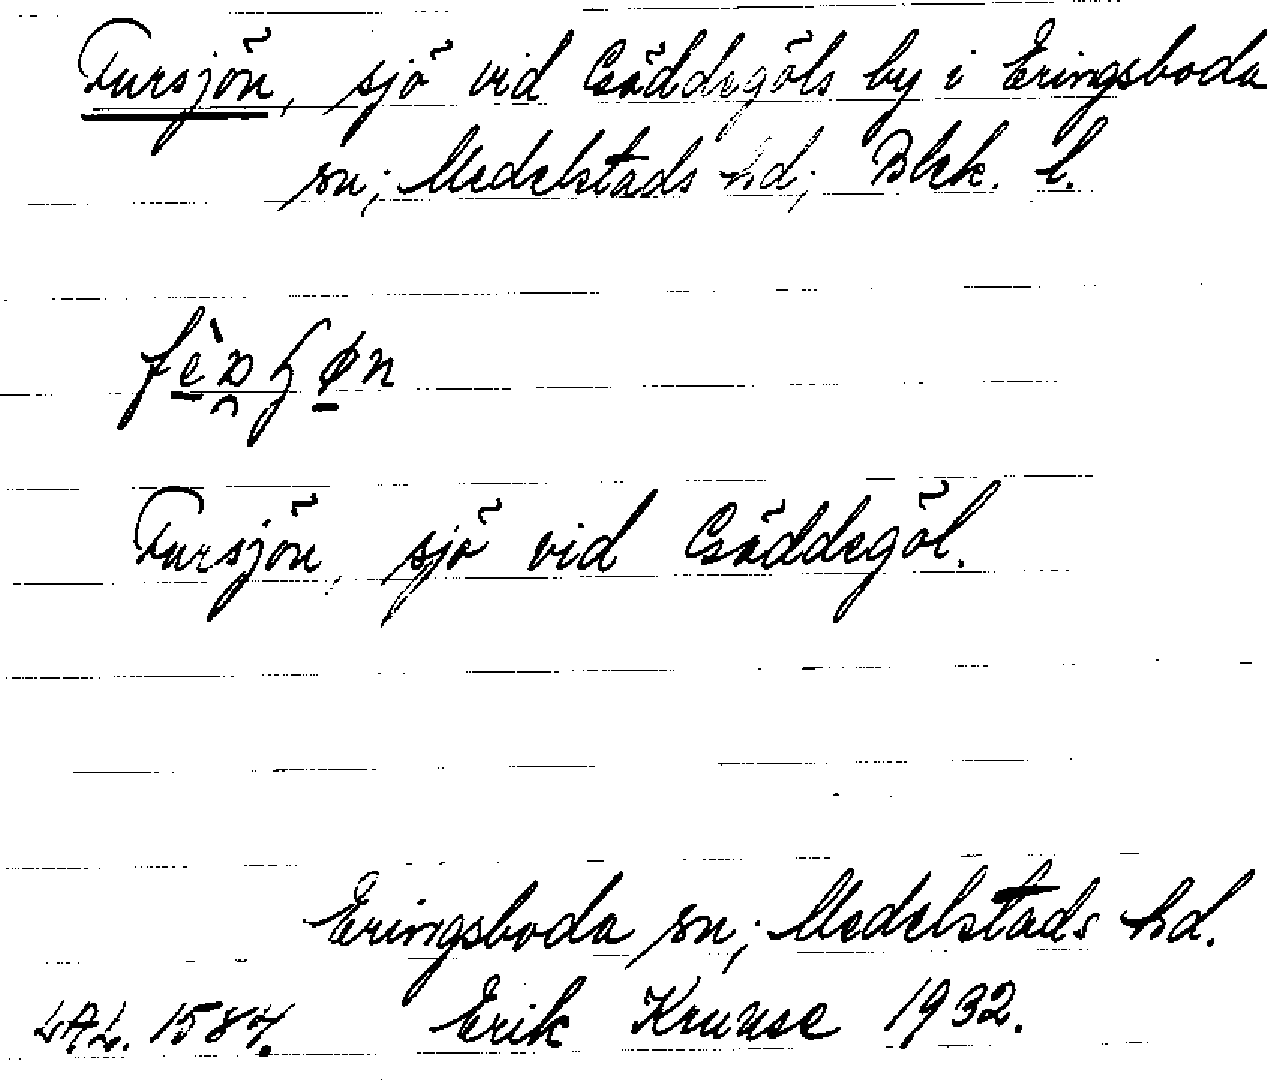 Fursjön, sjö vid Gäddegöls by i Eringsboda
sn; Medelstads hd; Blek. l.
Fursjön, sjö vid Gäddegöl.
Eringsboda sn; Medelstads hd.
LAL. 1584. Erik Kruuse 1932.